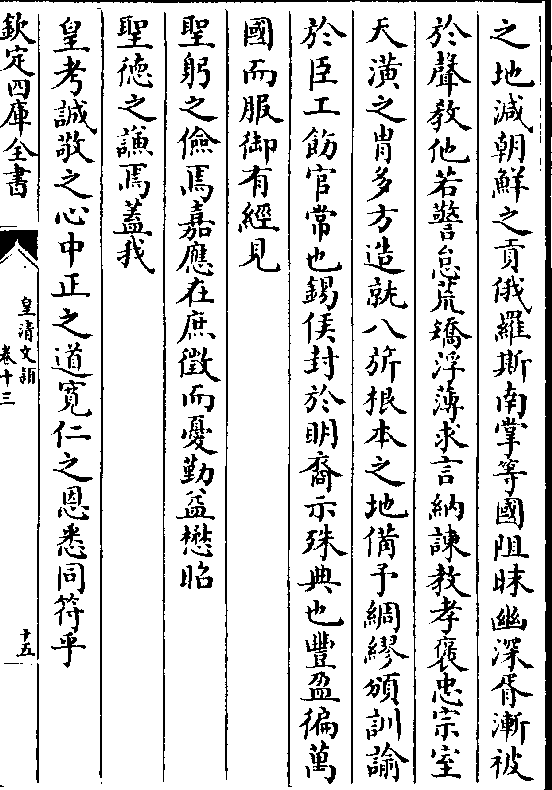 之地減朝鮮之貢俄羅斯南掌等國阻昧幽深胥漸被
於聲教他若警怠荒矯浮薄求言納諫教孝褒忠宗室
天潢之胄多方造就八旂根本之地備予綢繆頒訓諭
於臣工飭官常也錫侯封於明裔示殊典也豐盈徧萬
國而服御有經見
聖躬之儉焉嘉應在庶徵而憂勤益懋昭
聖德之謙焉蓋我
皇考誠敬之心中正之道寬仁之恩悉同符乎
欽定四庫全書
皇清文穎
卷十三
十五